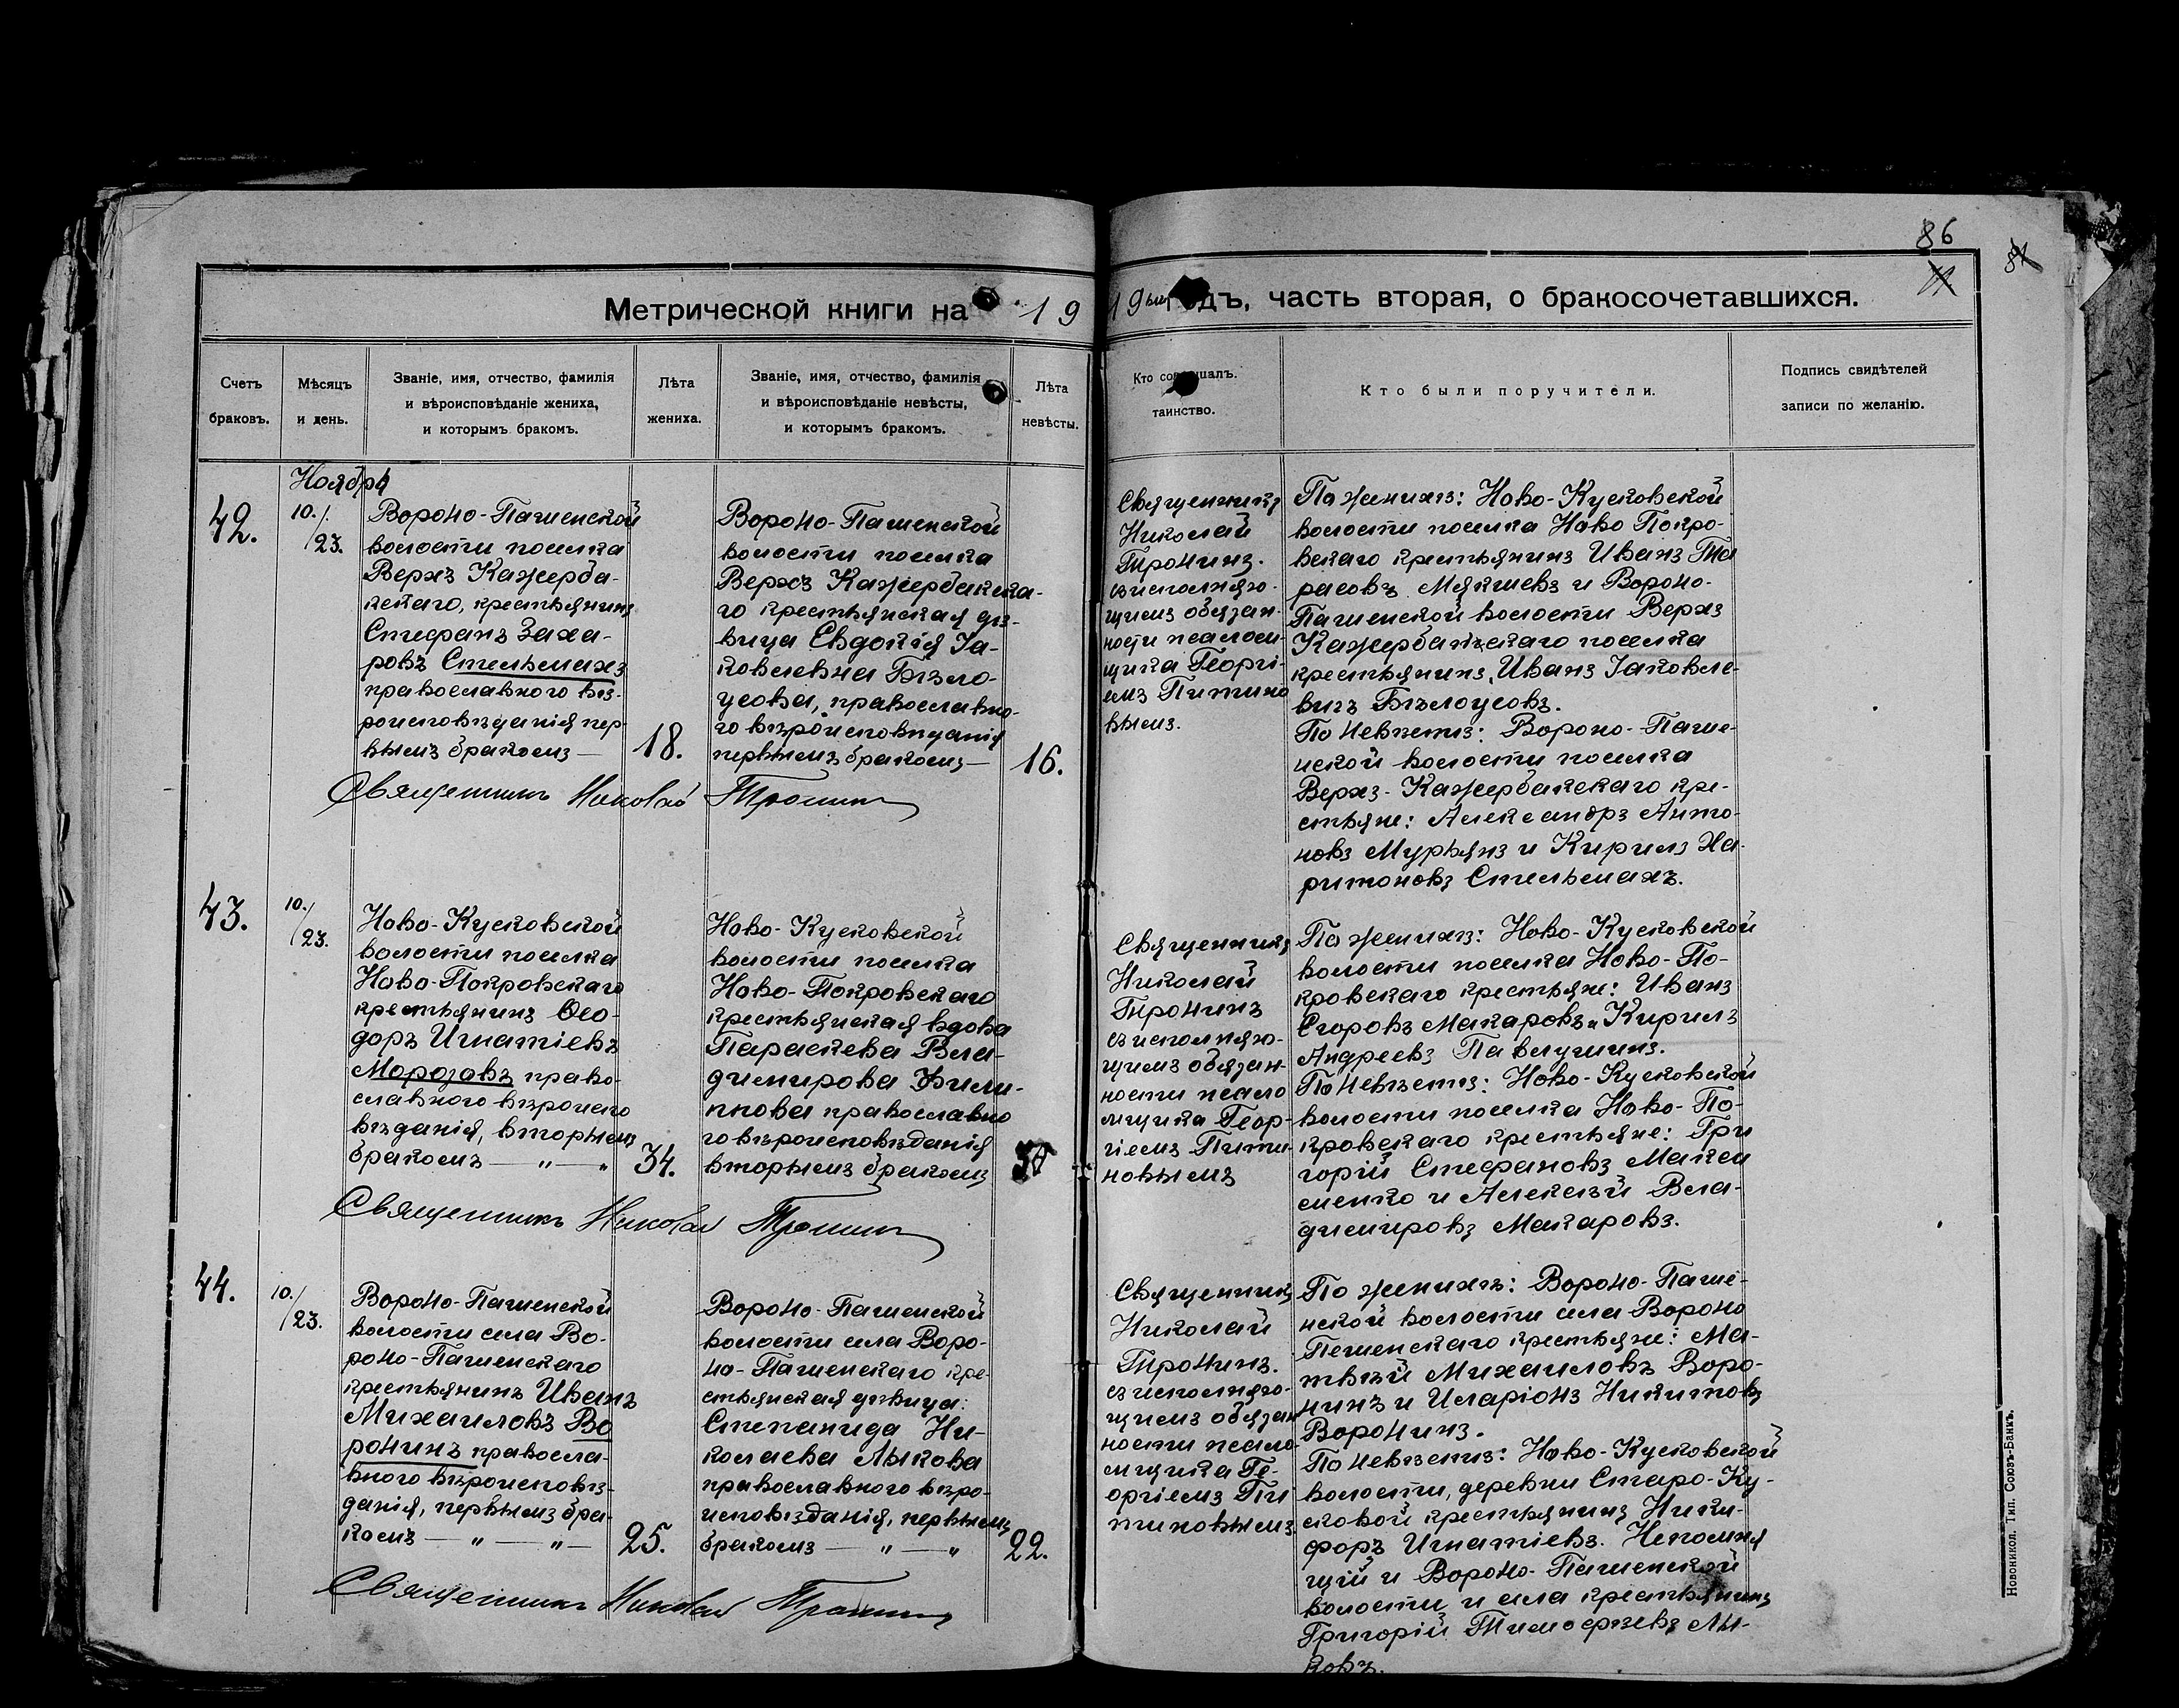 86
Метрической книги на 1919ый годъ, часть вторая, о бракосочетавшихся.
Счетъ
браковъ.
Мѣсяцъ
и день.
Званіе, имя, отчество, фамилія
и вѣроисповѣданіе жениха,
и которымъ бракомъ.
Лѣта
жениха.
Званіе, имя, отчество, фамилія
и вѣроисповѣданіе невѣсты,
и которымъ бракомъ.
Лѣта
невѣсты.
Кто совершалъ
таинство.
Кто были поручители.
Подпись свидѣтелей
записи по желанію.
Ноября
42.
10./
/23.
Вороно-Пашенской
волости поселка
Верхъ Кажерба-
кскаго, крестьянинъ
Стефанъ Заха-
ровъ Стельмахъ
православного вѣ-
роисповѣданія пер-
вымъ бракомъ —
18.
Вороно-Пашенской
волости поселка
Верхъ Кажербакска-
го крестьянская дѣ-
вица Евдокія Іа-
ковлевна Бѣло-
усова, православно-
го вѣроисповѣданія
первымъ бракомъ —
16.
Священникъ
Николай
Тронинъ.
съ исполняю-
щимъ обязан-
ности псалом-
щика Георгі-
емъ Питино
вымъ.
По женихѣ: Ново-Кусковской
волости поселка Ново Покро-
вскаго крестьянинъ Иванъ Та
расовъ Мякшевъ и Вороно-
Пашенской волости Верхъ
Кажербакскаго поселка
крестьянинъ, Иванъ Іаковле-
вичъ Бѣлоусовъ.
По невѣстѣ: Вороно-Паше-
нской волости поселка
Верхъ-Кажербакскаго кре-
стьяне: Александръ Анто-
новъ Мурьянъ и Кирилъ Ха-
ритоновъ Стельмахъ.
Священникъ Николай Тронинъ
43.
10./
/23.
Ново-Кусковской
волости поселка
Ново-Покровскаго
крестьянинъ Ѳео-
доръ Игнатіевъ
Морозовъ право-
славного вѣроиспо
вѣданія, вторымъ
бракомъ — „ — „
34.
Ново-Кусковской
волости поселка
Ново-Покровскаго
крестьянская вдова
Параскева Вла-
димирова Фили-
ппова православно
го вѣроисповѣданія
вторымъ бракомъ
Священникъ
Николай
Тронинъ
съ исполняю-
щимъ обязан-
ности псало
мщика Геор-
гіемъ Пити-
новымъ
По женихѣ: Ново-Кусковской
волости поселка Ново-По-
кровскаго крестьяне: Иванъ
Егоровъ Макаровъ и Кирилъ
Андреевъ Павлушинъ.
По невѣстѣ: Ново-Кусковской
волости поселка Ново-По-
кровскаго крестьяне: Гри
горій Стефановъ Макси
менко и Алексѣй Вла-
димировъ Макаровъ.
Священникъ Николай Тронинъ
44.
10./
/23.
Вороно-Пашенской
волости села Во-
роно-Пашенскаго
крестьянинъ Иванъ
Михаиловъ Во
ронинъ правосла-
вного вѣроисповѣ-
данія, первымъ бра-
комъ — „ — „ —
25.
Вороно-Пашенской
волости села Воро-
но-Пашенскаго кре-
стьянская дѣвица:
Степанида Ни-
колаева Лыкова
православного вѣро-
исповѣданія, первымъ
бракомъ — „ — „
22.
Священникъ
Николай
Тронинъ.
съ исполняю-
щимъ обязан
ности псало-
мщика Ге-
оргіемъ Пи
тиновымъ.
По женихѣ: Вороно-Паше-
нской волости села Вороно
Пешенскаго крестьяне: Ма-
твѣй Михаиловъ Воро-
нинъ и Иларіонъ Никитовъ
Воронинъ.
По невѣстѣ: Ново-Кусковской
волости, деревни Старо-Ку-
сковой крестьянинъ Ники-
форъ Игнатіевъ. Непомня
щій и Вороно-Пашенской
волости и села крестьянинъ
Григорій Тимофѣевъ Лы-
ковъ.
Священникъ Николай Тронинъ
Новоникол. Тип. Союзъ-Банкъ.